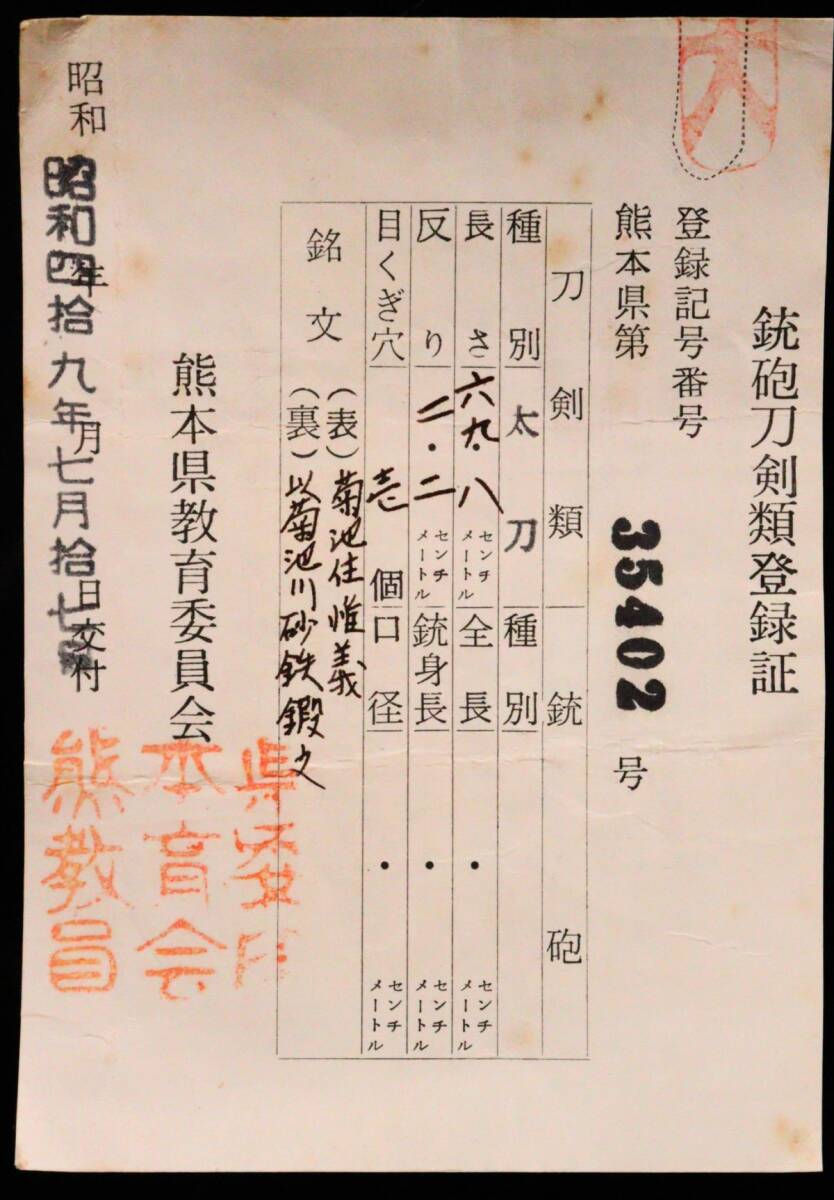 銃砲刀剣類登録証
登録記号番号
熊本県第 35402 号
刀剣類 銃砲
種別 太刀 種別
長さ 六九・八 センチメートル 全長 ・ センチメートル
反り 二・二 センチメートル 銃身長 ・ センチメートル
目くぎ穴 壱 個 口径 ・ センチメートル
銘文 (表) 菊池住惟義
(裏) 以菊池川砂鉄鍛之
熊本県教育委員会
昭和 年 月 日交付
昭和四拾九年七月拾七日
県委印
本育会
熊教員